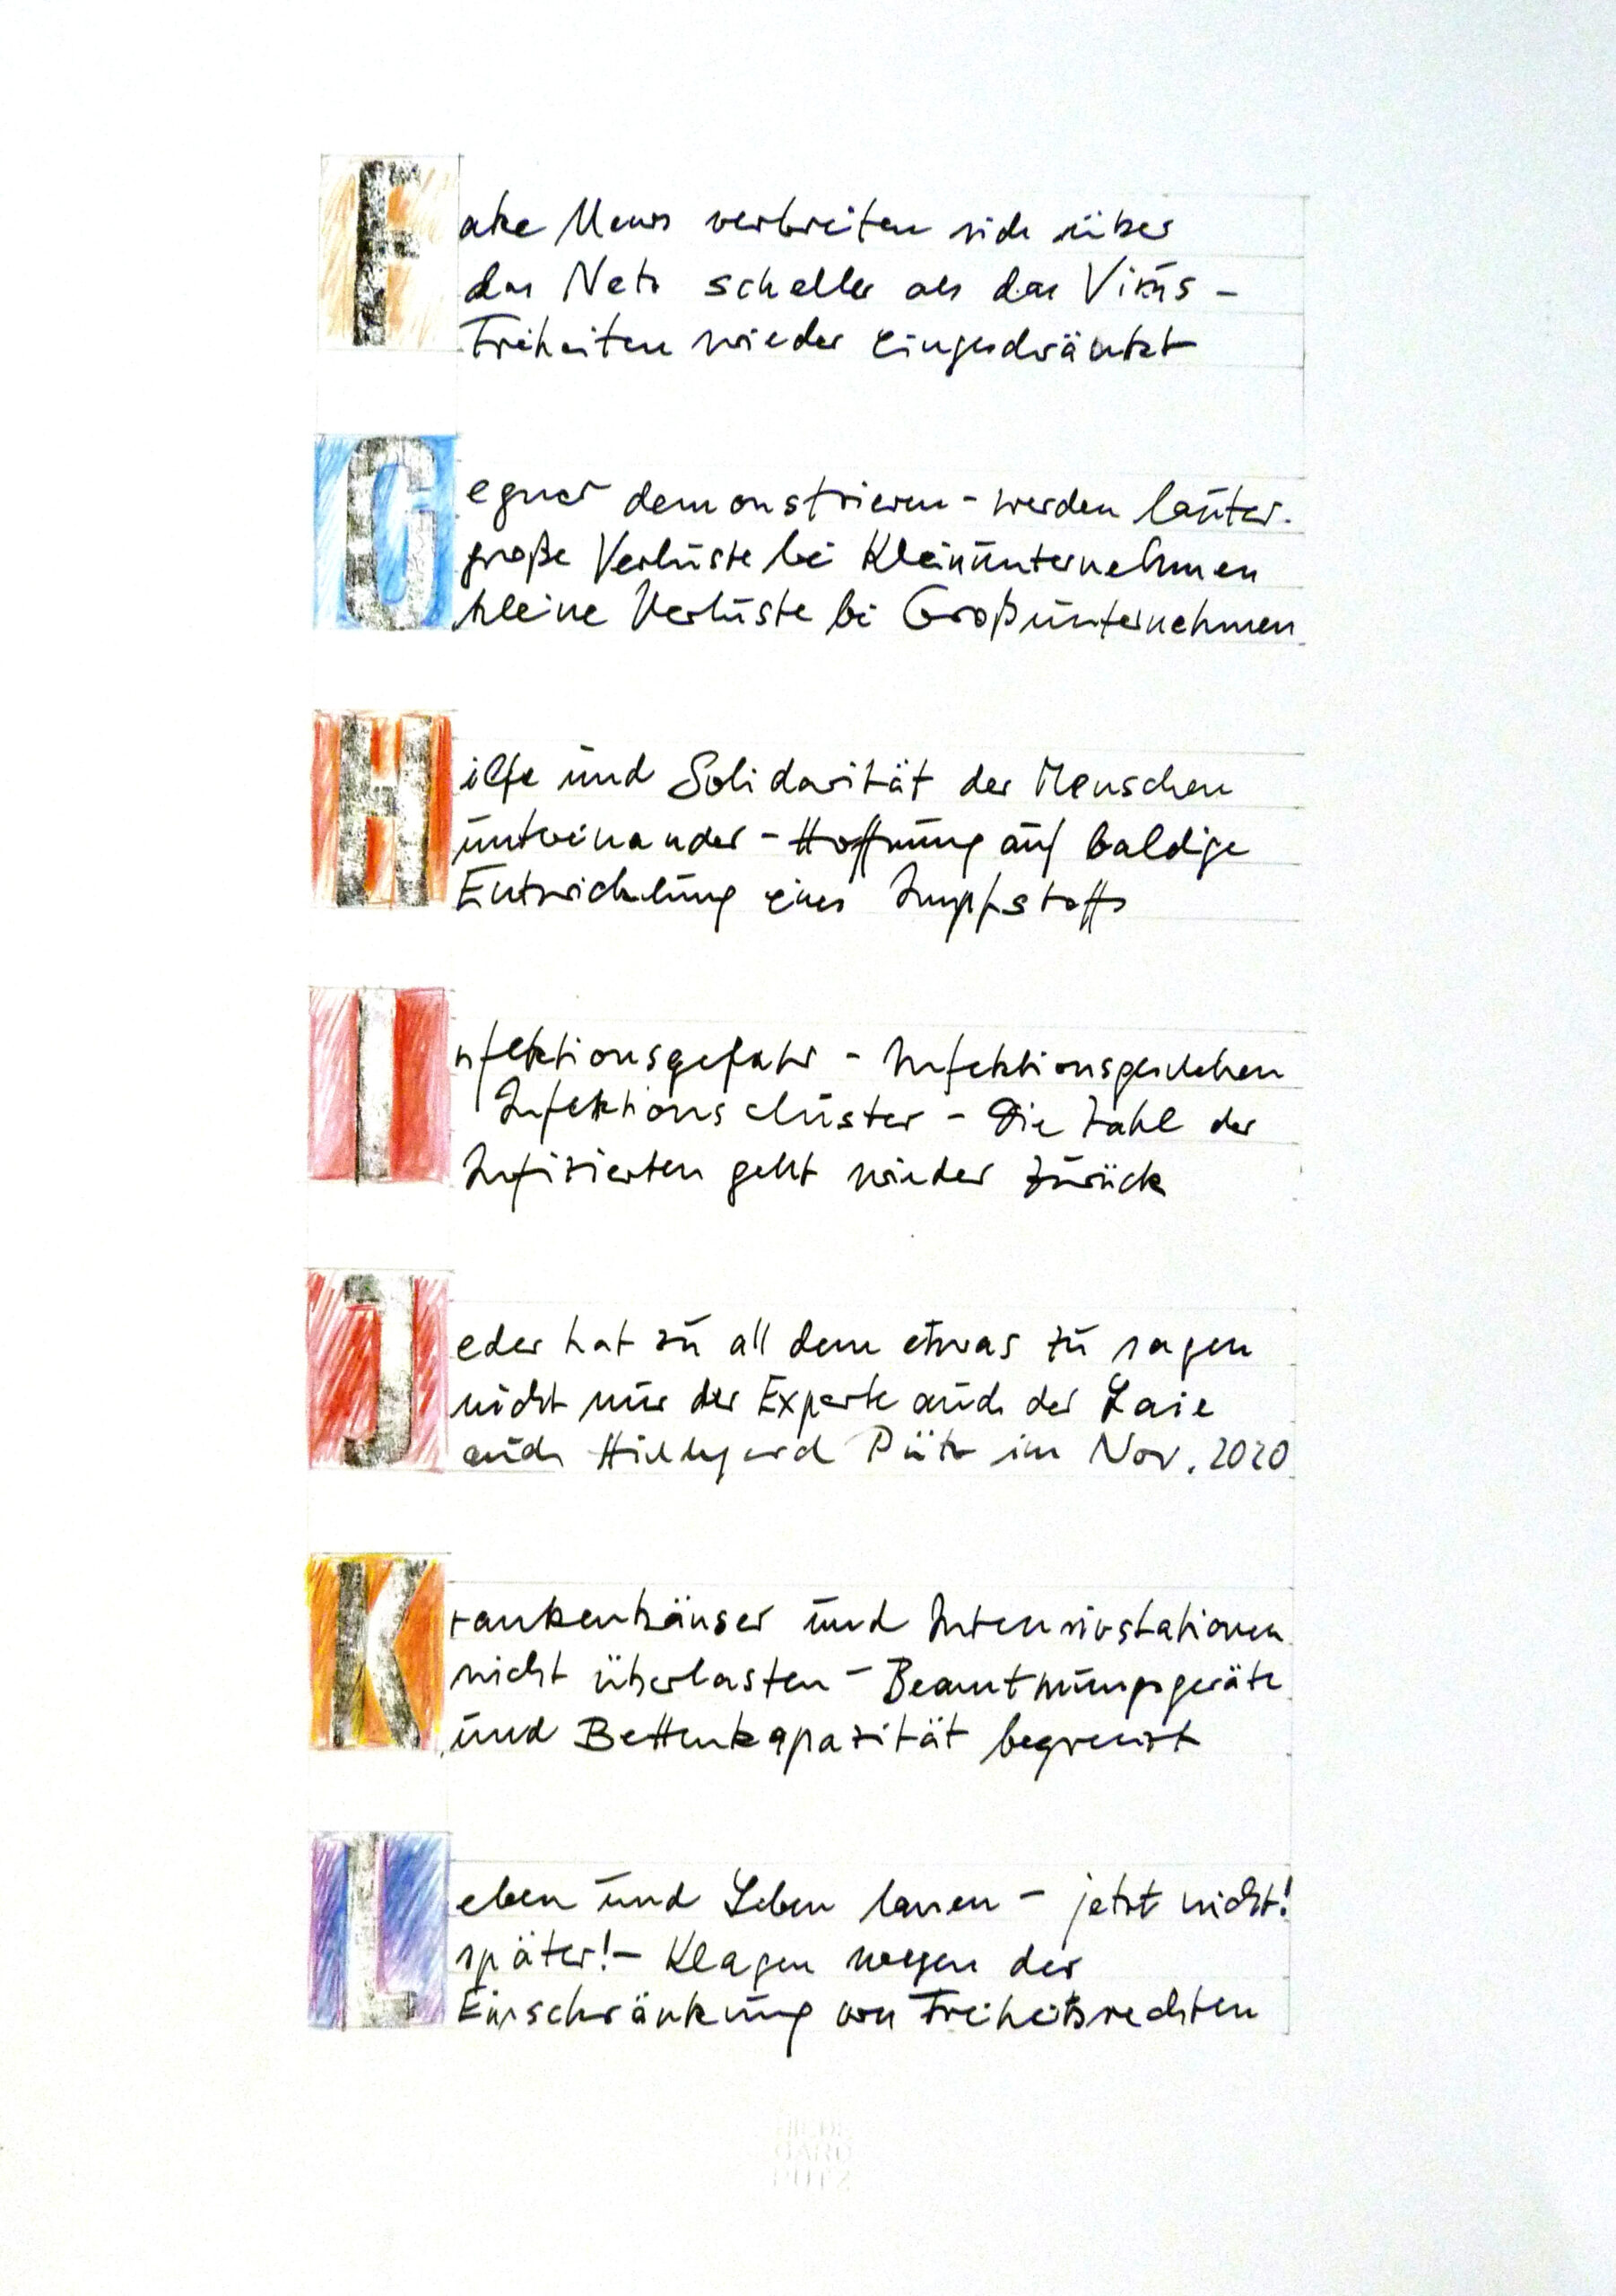 Fake News verbreiten sich über
das Netz scheller als das Virus –
Freiheiten wieder eingeschränkt
Gegner demonstrieren – werden lauter.
große Verluste bei Kleinunternehmen
kleine Verluste bei Großunternehmen
Hilfe und Solidarität der Menschen
untereinander – Hoffnung auf baldige
Entwicklung eines Impfstoffs
Infektionsgefahr – Infektionsgeschehen
Infektionscluster – Die Zahl der
Infizierten geht wieder zurück
Jeder hat zu all dem etwas zu sagen
nicht nur der Experte auch der Laie
auch Hildegard Pütz im Nov. 2020
Krankenhäuser und Intensivstationen
nicht überlasten – Beatmungsgeräte
und Bettenkapazität begrenzt
Leben und Leben lassen – jetzt nicht!
später! – Klagen wegen der
Einschränkung von Freiheitsrechten
HILDE
GARD
PÜTZ